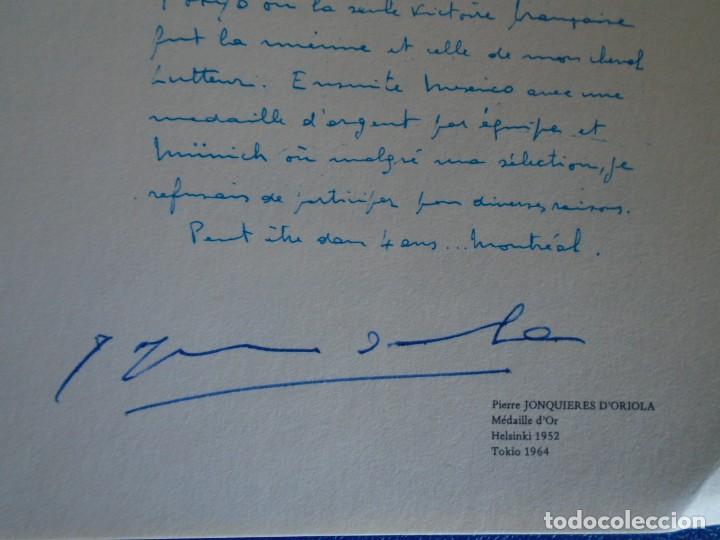 Tokyo où la seule victoire française
fut la mienne et celle de mon cheval
Lutteur. Ensuite Mexico avec une
medaille d'argent par équipe et
Münich où malgré ma sélection, je
refusais de participer pour diverses raisons.
Peut être dans 4 ans... Montréal.
Pierre JONQUIERES D'ORIOLA
Médaille d'Or
Helsinki 1952
Tokio 1964
todocoleccion